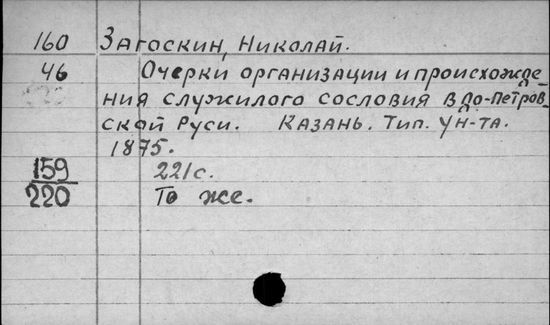 160 Загоскин, Николай.
46 Очерки организации и происхожде
ния служилого сословия в до-Петров_
ской Руси. Казань. Тип. ун-та.
1875.
159 221с.
220 То же.